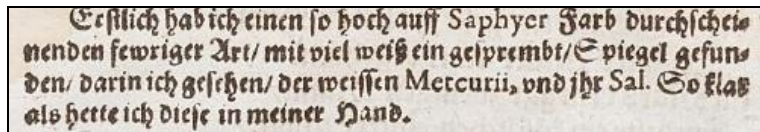 Erstlich hab ich einen so hoch auff Saphyer Farb durchschei-
nenden fewriger Art/ mit viel weiß ein gesprembt/ Spiegel gefun-
den/ darin ich gesehen/ der weissen Mercurii, vnd jhr Sal. So klar
als hette ich diese in meiner Hand.